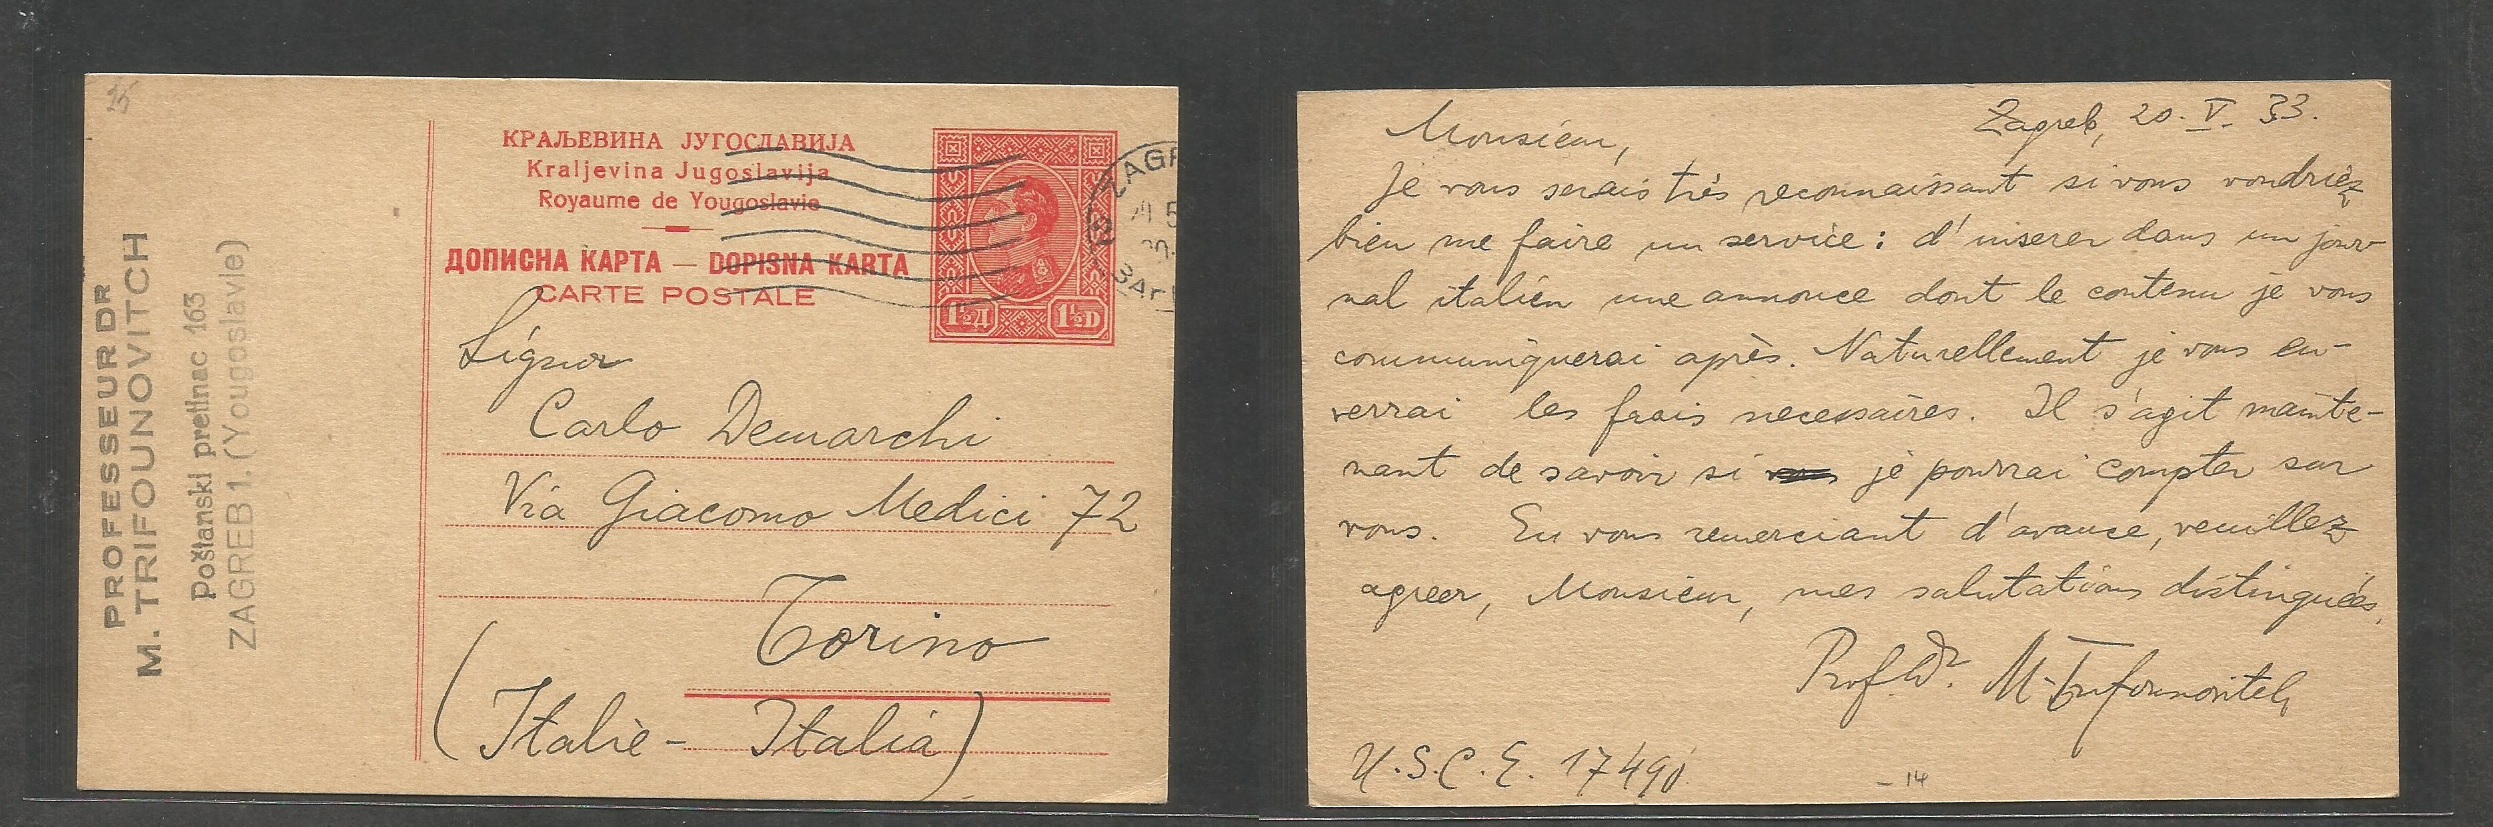 25
PROFESSEUR DR
M. TRIFOUNOVITCH
Poštanski pretinac 163
ZAGREB 1. (Yougoslavie)
КРАЉЕВИНА ЈУГОСЛАВИЈА
Kraljevina Jugoslavija
Royaume de Yougoslavie
ДОПИСНА КАРТА — DOPISNA KARTA
CARTE POSTALE
1½Д 1½D
ZAGR
Signor
Carlo Demarchi
Via Giacomo Medici 72
Torino
(Italie - Italia)
Zagreb, 20. V. 33.
Monsieur,
Je vous serais très reconnaissant si vous voudriez
bien me faire un service: d'inserer dans un jour-
nal italien une annonce dont le contenu je vous
communiquerai après. Naturellement je vous en-
verrai les frais necessaires. Il s'agit mainte-
nant de savoir si je pourrai compter sur
vous. En vous remerciant d'avance, veuillez
agreer, Monsieur, mes salutations distinguées.
Prof. Dr. M. Trifounovitch
U.S.C.E. 17490
- 14